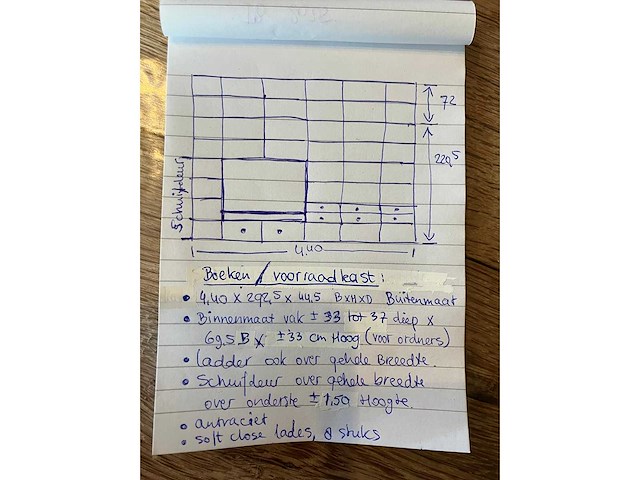 72
220,5
Schuifdeur
4,40
Boeken / voorraadkast:
• 4,40 x 292,5 x 44,5 BxHxD Buitenmaat
• Binnenmaat vak ± 33 tot 37 diep x
69,5 B x ± 33 cm Hoog (voor ordners)
• ladder ook over gehele Breedte.
• Schuifdeur over gehele breedte
over onderste ± 1,50 Hoogte.
• antraciet
• soft close lades, 8 stuks